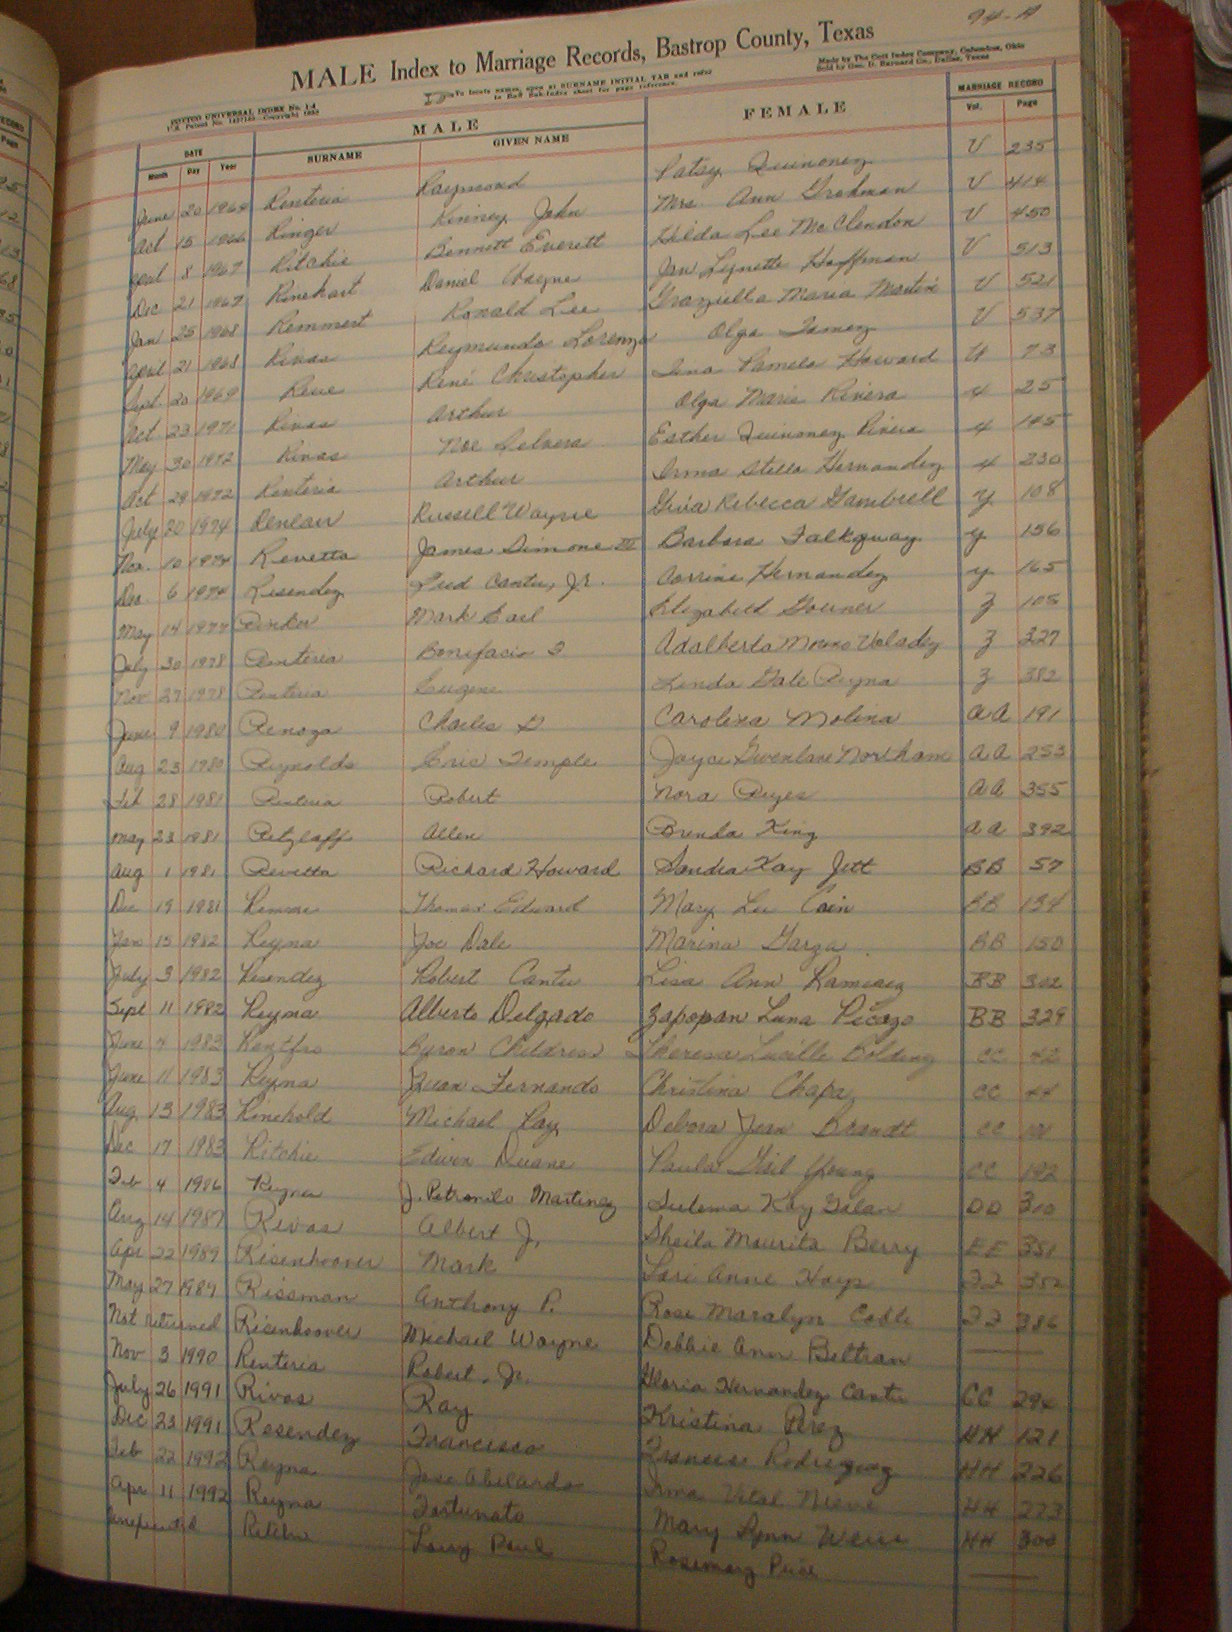 94-A
MALE Index to Marriage Records, Bastrop County, Texas
To locate names, open at SURNAME INITIAL TAB and refer
to Buff Sub-Index sheet for page reference.
Made by The Cott Index Company, Columbus, Ohio
Sold by Geo. D. Barnard Co., Dallas, Texas
COTTCO UNIVERSAL INDEX No. 1-4
MALE FEMALE MARRIAGE RECORD
DATE SURNAME GIVEN NAME Vol. Page
Month Day Year
June 20 1964 Renteria Raymond Patsy Quinonez V 235
Oct 15 1966 Ringer Kinney John Mrs. Ann Grohman V 414
April 8 1967 Ritchie Bennett Everett Hilda Lee McClendon V 450
Dec 21 1967 Rinehart Daniel Wayne Jan Lynette Hoffman V 513
Jan 25 1968 Remmert Ronald Lee Graziella Maria Martini V 521
April 21 1968 Rivas Reymundo Lorenzo Olga Tamez V 537
Sept. 20 1969 René Christopher Tina Pamela Howard W 73
Oct 23 1971 Rivas Arthur Olga Marie Rivera X 25
May 30 1972 Rivas Noe Esther Quinonez Rivera X 195
Oct 29 1972 Renteria Arthur Irma Stella Hernandez X 230
July 20 1974 Renlau Russell Wayne Rebecca Gambrell Y 108
Nov. 10 1974 Revetta James Simone III Barbara Falkquay Y 156
Dec. 6 1974 Resendez Fred Cantu, Jr. Corrine Hernandez Y 165
May 14 1977 Rinker Mark Earl Elizabeth Z 105
July 30 1978 Renteria Bonifacio Adalberta Valadez Z 327
Nov 27 1978 Renteria Eugene Linda Gale Reyna Z 382
June 9 1980 Renoza Charles Carolina Molina AA 191
Aug 23 1980 Reynolds Eric Temple Joyce Gwenlane Northam AA 253
Feb 28 1981 Renteria Robert Nora Reyes AA 355
May 23 1981 Retzlaff Allen Brenda King AA 392
Aug 1 1981 Revetta Richard Howard Sandra Kay Jett BB 57
Dec 19 1981 Thomas Edward Mary Lee Cain BB 134
Jan 15 1982 Reyna Joe Dale Marina Garza BB 150
July 3 1982 Resendez Robert Cantu Lisa Ann Ramirez BB 302
Sept 11 1982 Reyna Alberto Delgado Zapopan Luna Picazo BB 329
June 1983 Rentfro Byron Childress Theresa Lucille Bolding CC 42
June 11 1983 Reyna Juan Fernando Christina Chapa CC 44
Aug 13 1983 Rinehold Michael Ray Debora Jean Brandt CC
Dec 17 1983 Ritchie Edwin Duane Paula Gail Young CC 192
Feb 4 1986 Reyna J. Petronilo Martinez Sulema Kay Galan DD 300
Aug 14 1987 Rivas Albert J. Sheila Maurita Berry EE 351
Apr 22 1989 Risenhoover Mark Lori Anne Hays FF 352
May 27 1989 Rissman Anthony P. Rose Maralyn Coble FF 386
Not returned Risenhoover Michael Wayne Debbie Ann Beltran
Nov 3 1990 Renteria Robert, Jr. Gloria Hernandez Cantu GG 294
July 26 1991 Rivas Ray Kristina Perez HH 121
Dec 23 1991 Resendez Francisco Frances Rodriguez HH 226
Feb 22 1992 Reyna Jose Abelardo Irma Vital Nieve HH 273
Apr 11 1992 Reyna Fortunato Mary Lynn Weiss HH 300
Ritchie Larry Paul Rosemary Price